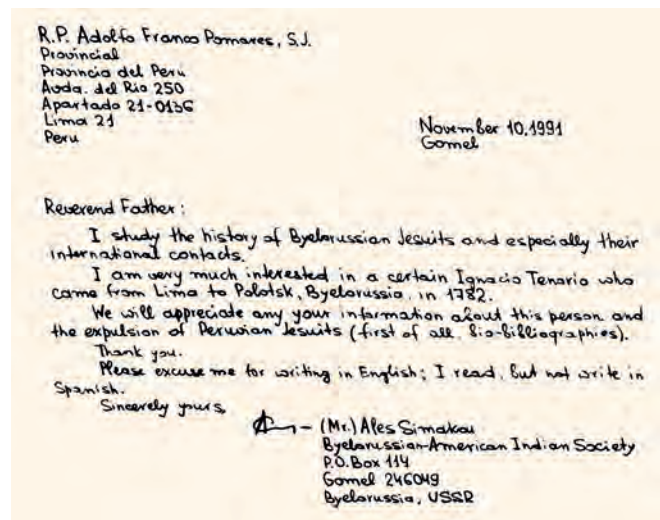 R.P. Adolfo Franco Pomares, S.J.
Provincial
Provincia del Perú
Avda. del Rio 250
Apartado 21-0136
Lima 21
Peru
November 10.1991
Gomel
Reverend Father:
I study the history of Byelorussian Jesuits and especially their
international contacts.
I am very much interested in a certain Ignacio Tenorio who
came from Lima to Polotsk, Byelorussia, in 1782.
We will appreciate any your information about this person and
the expulsion of Peruvian Jesuits (first of all, bio-bibliographies).
Thank you.
Please excuse me for writing in English; I read, but not write in
Spanish.
Sincerely yours,
(Mr.) Ales Simakou
Byelorussian-American Indian Society
P.O. Box 114
Gomel 246049
Byelorussia, USSR